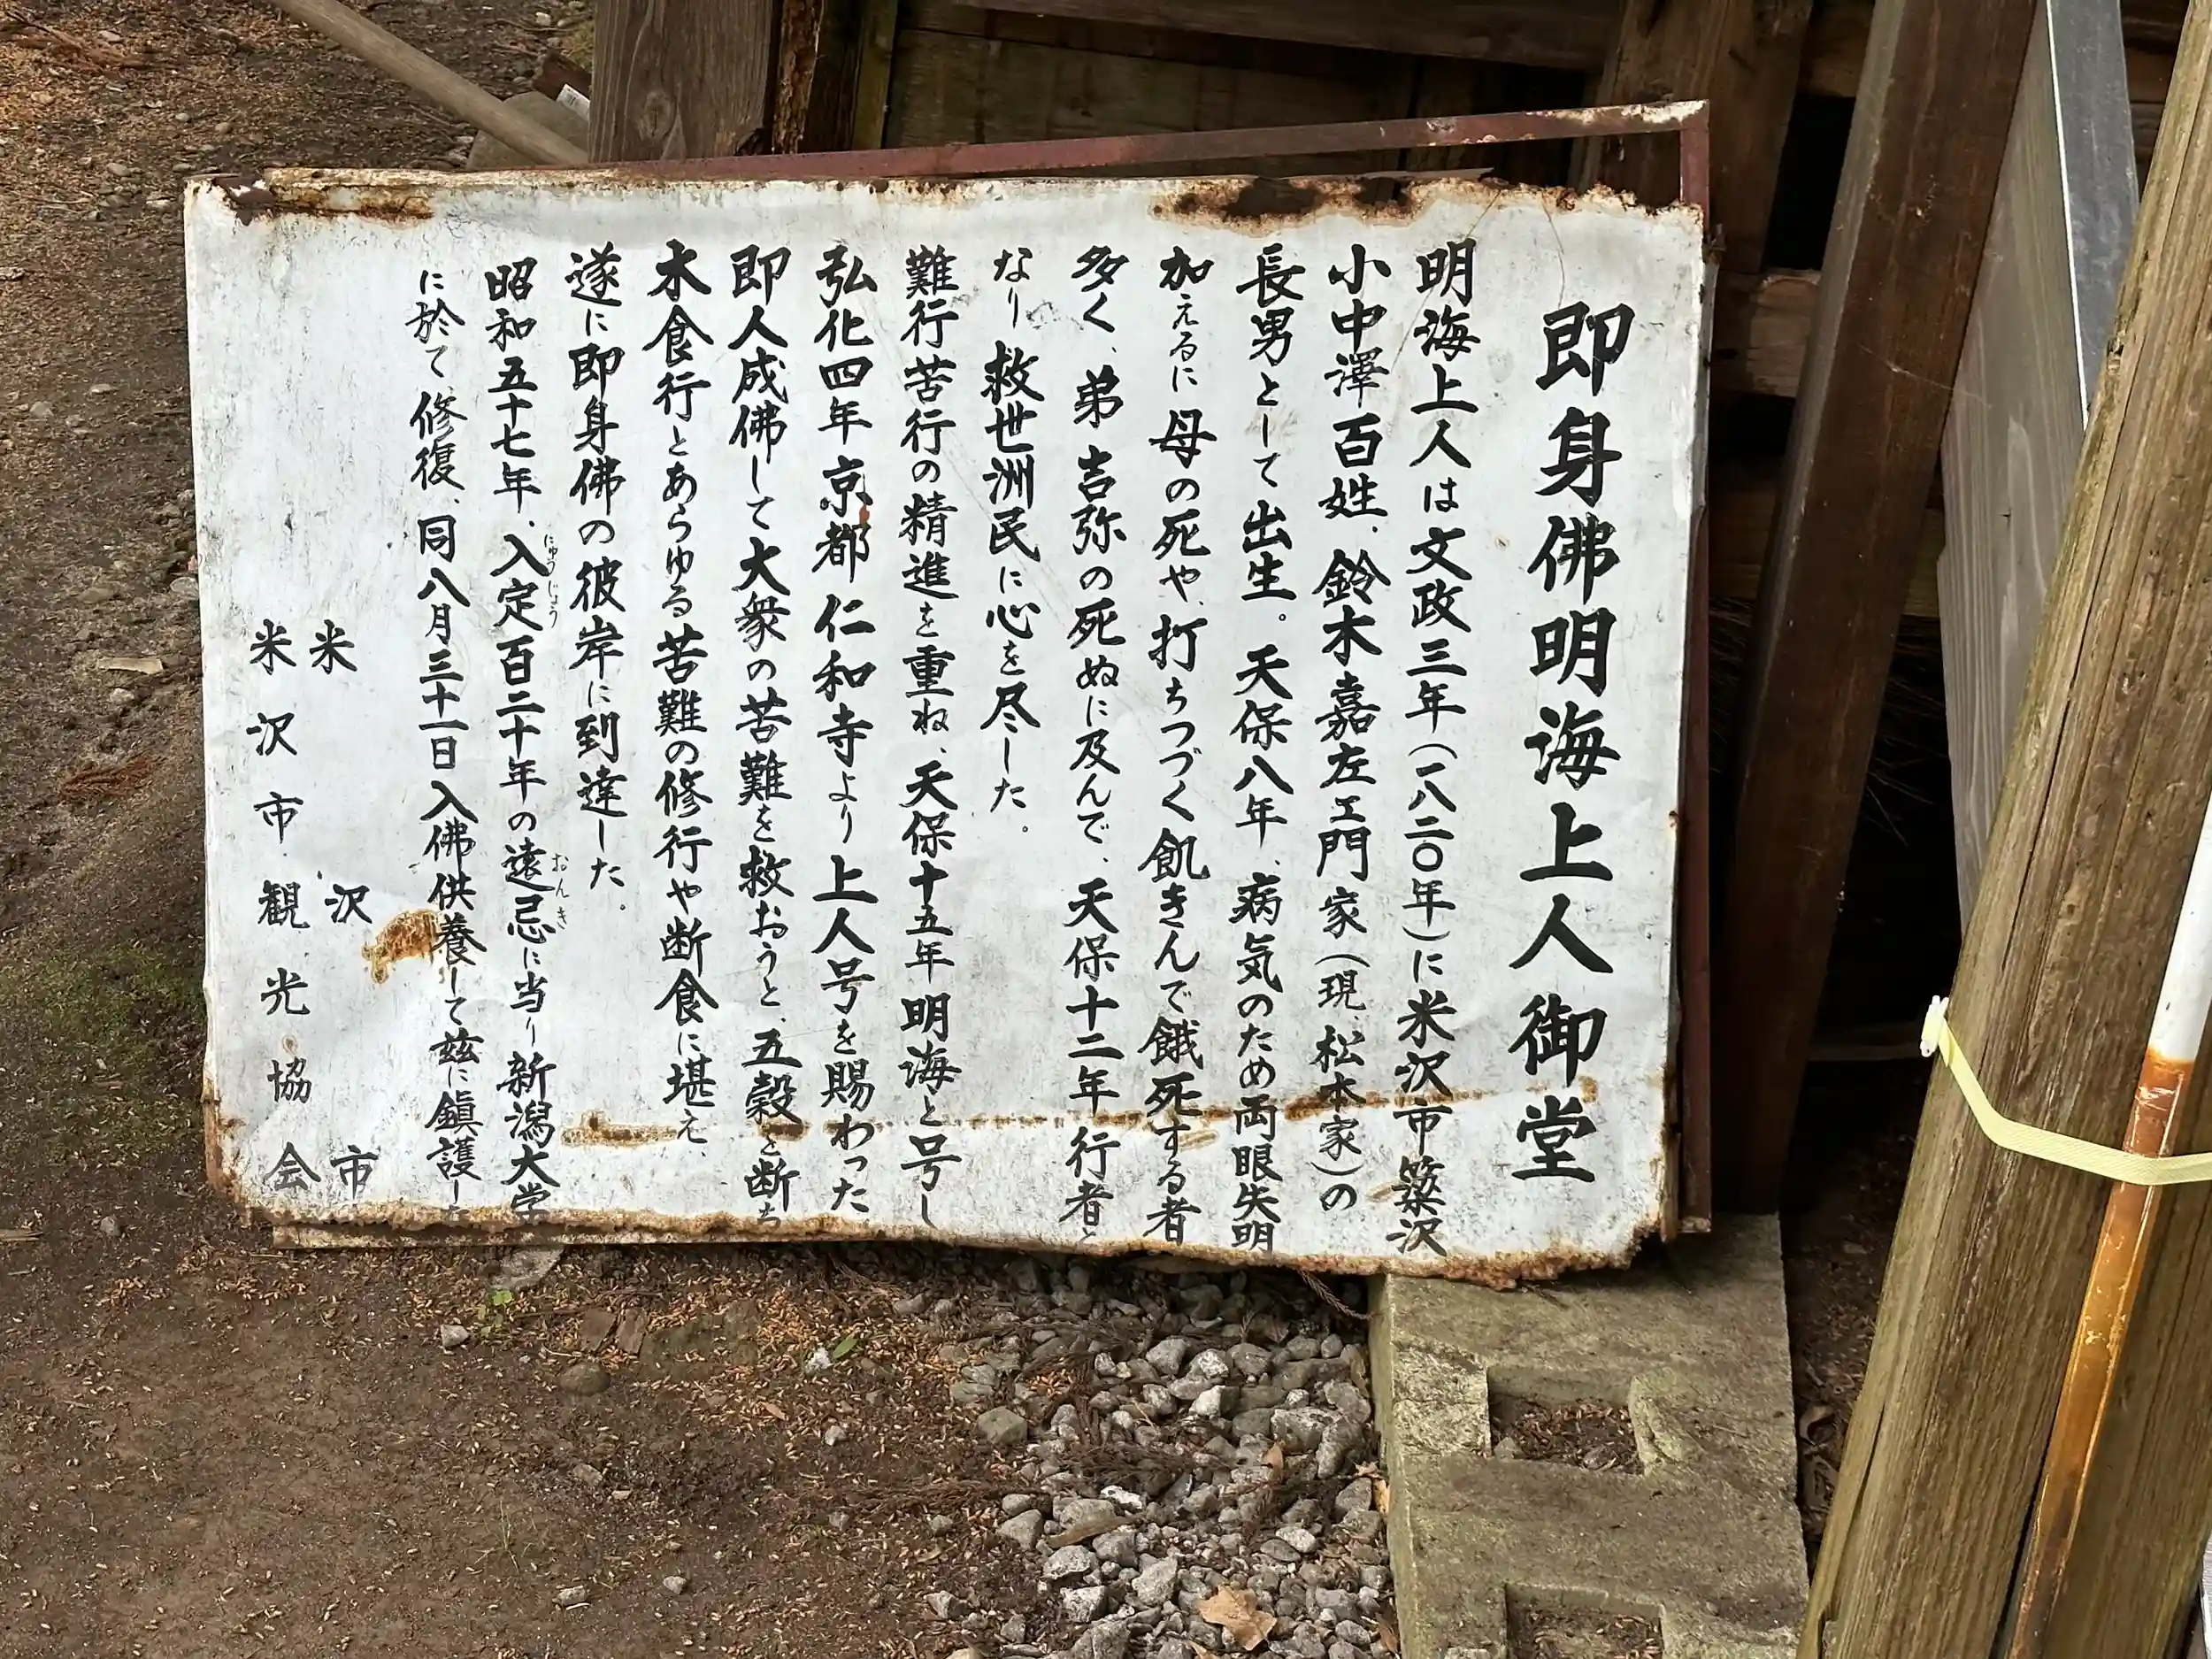 即身佛明海上人御堂
明海上人は文政三年(一八二〇年)に米沢市簗沢
小中澤百姓、鈴木嘉左ヱ門家(現、松本家)の
長男として出生。天保八年、病気のため両眼失明
加えるに母の死や、打ちつづく飢きんで餓死する者
多く、弟吉弥の死ぬに及んで、天保十二年行者と
なり救世洲民に心を尽した。
難行苦行の精進を重ね、天保十五年明海と号し
弘化四年京都仁和寺より上人号を賜わった
即人成佛して大衆の苦難を救おうと、五穀を断ち
木食行とあらゆる苦難の修行や断食に堪え、
遂に即身佛の彼岸に到達した。
昭和五十七年、入定百二十年の遠忌に当り新潟大学
にゅうじょう
おんき
に於て修復、同八月三十一日入佛供養して茲に鎭護した
米沢市
米沢市観光協会